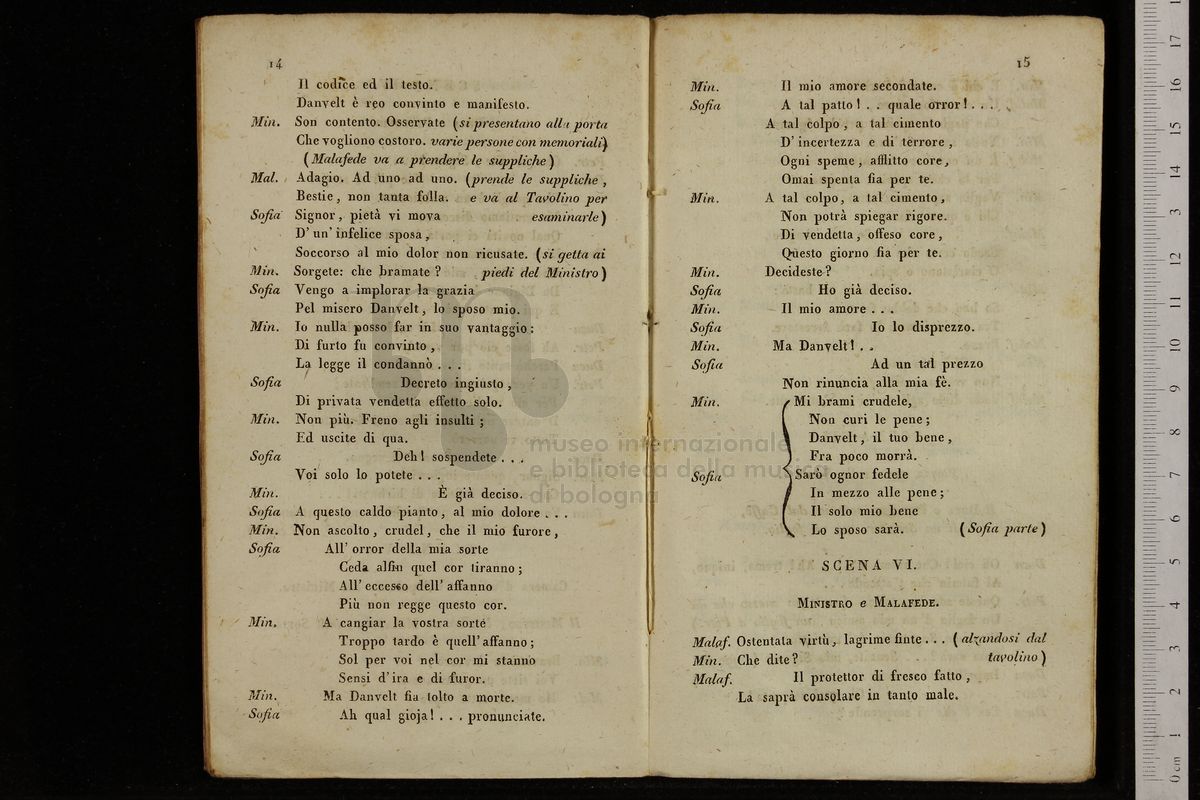 14
Il codice ed il testo.
Danvelt è reo convinto e manifesto.
Min. Son contento. Osservate (si presentano alla porta
Che vogliono costoro. varie persone con memoriali)
(Malafede va a prendere le suppliche)
Mal. Adagio. Ad uno ad uno. (prende le suppliche,
Bestie, non tanta folla. e va al Tavolino per
Sofia Signor, pietà vi mova esaminarle)
D'un'infelice sposa,
Soccorso al mio dolor non ricusate. (si getta ai
Min. Sorgete: che bramate? piedi del Ministro)
Sofia Vengo a implorar la grazia
Pel misero Danvelt, lo sposo mio.
Min. Io nulla posso far in suo vantaggio:
Di furto fu convinto,
La legge il condannò . . .
Sofia Decreto ingiusto,
Di privata vendetta effetto solo.
Min. Non più. Freno agli insulti;
Ed uscite di qua.
Sofia Deh! sospendete . . .
Voi solo lo potete . . .
Min. È già deciso.
Sofia A questo caldo pianto, al mio dolore . . .
Min. Non ascolto, crudel, che il mio furore,
Sofia All'orror della mia sorte
Ceda alfin quel cor tiranno;
All'eccesso dell'affanno
Più non regge questo cor.
Min. A cangiar la vostra sorte
Troppo tardo è quell'affanno;
Sol per voi nel cor mi stanno
Sensi d'ira e di furor.
Min. Ma Danvelt fia tolto a morte.
Sofia Ah qual gioja! . . . pronunciate.
15
Min. Il mio amore secondate.
Sofia A tal patto! . . quale orror! . . .
A tal colpo, a tal cimento
D'incertezza e di terrore,
Ogni speme, afflitto core,
Omai spenta fia per te.
Min. A tal colpo, a tal cimento,
Non potrà spiegar rigore.
Di vendetta, offeso core,
Questo giorno fia per te.
Min. Decideste?
Sofia Ho già deciso.
Min. Il mio amore . . .
Sofia Io lo disprezzo.
Min. Ma Danvelt! . .
Sofia Ad un tal prezzo
Non rinuncia alla mia fè.
Min. Mi brami crudele,
Non curi le pene;
Danvelt, il tuo bene,
Fra poco morrà.
Sofia Sarò ognor fedele
In mezzo alle pene;
Il solo mio bene
Lo sposo sarà. (Sofia parte)
SCENA VI.
MINISTRO e MALAFEDE.
Malaf. Ostentata virtù, lagrime finte . . . (alzandosi dal
Min. Che dite? tavolino)
Malaf. Il protettor di fresco fatto,
La saprà consolare in tanto male.
museo internazionale
e biblioteca della musica
di bologna
0 cm 1 2 3 4 5 6 7 8 9 10 11 12 13 14 15 16 17